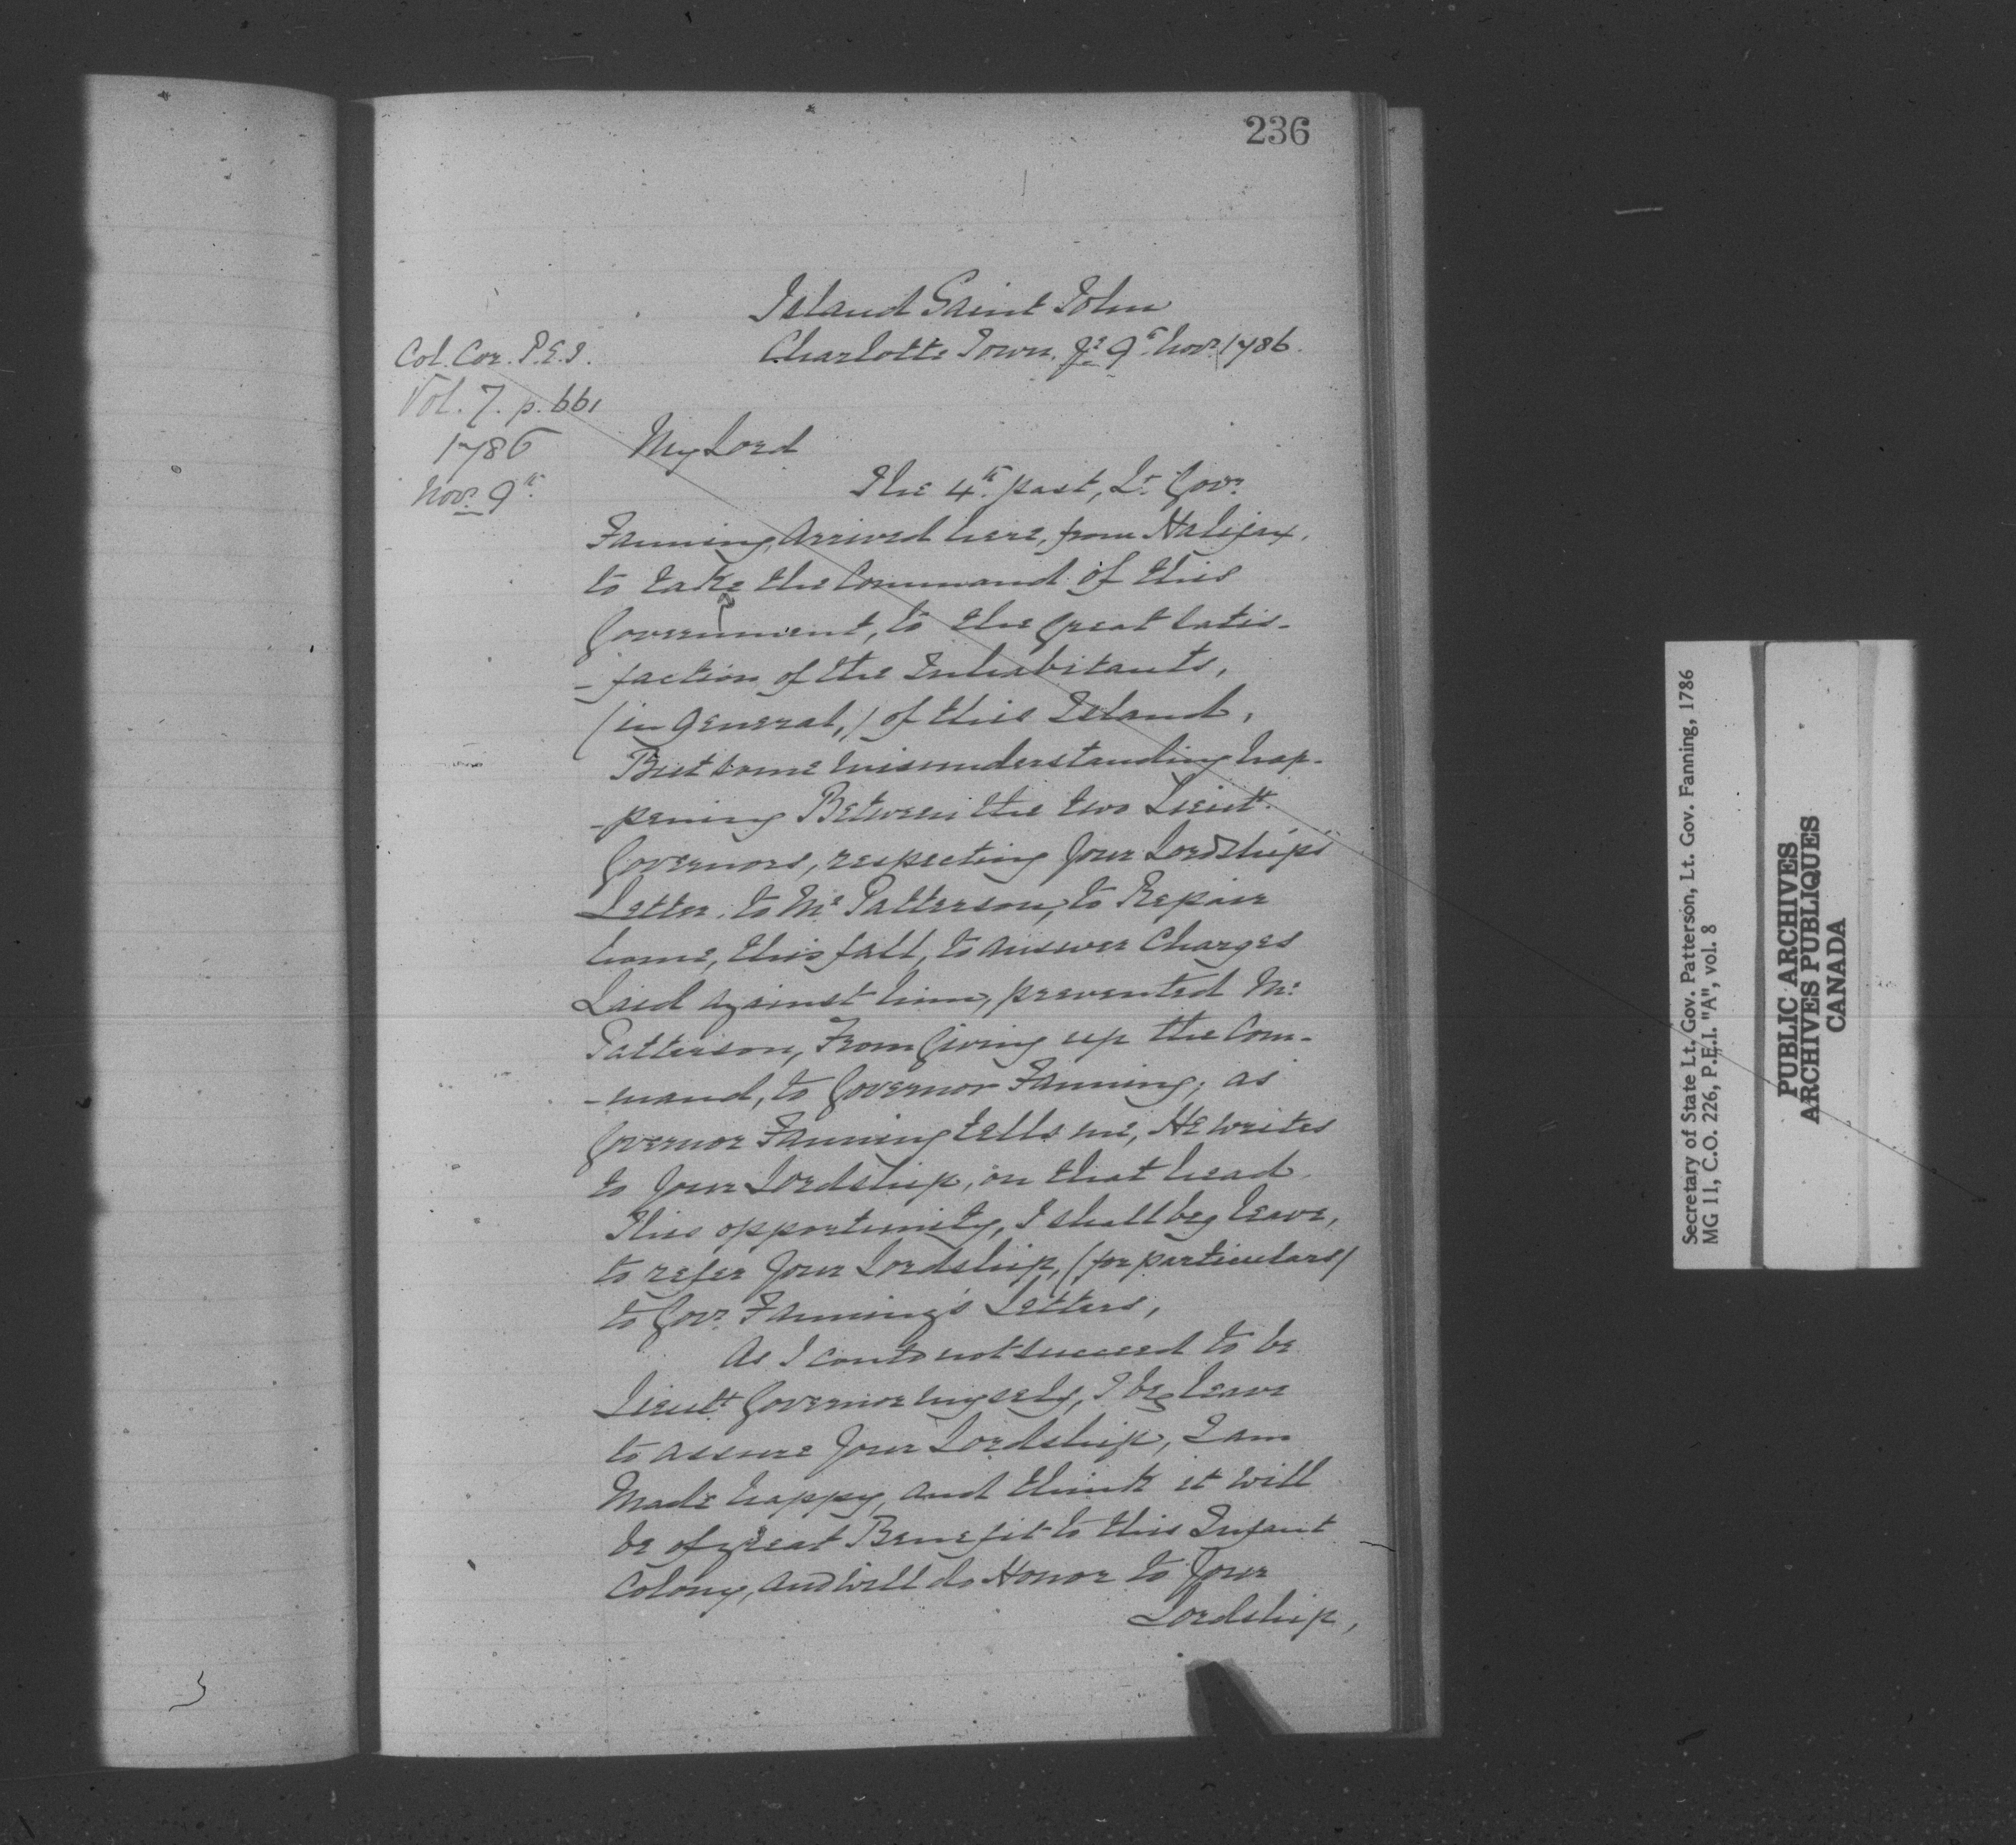 236
Island Saint John
Charlotte Town, ye 9th Novr 1786.
Col. Cor. P.E.I.
Vol. 7. p. 661
1786
Novr 9th
My Lord
The 4th past, Lt. Govr
Fanning, Arrived here, from Halifax,
to take the Command of this
Government, to the Great Satis-
-faction of the Inhabitants,
(in General,) of this Island,
But some misunderstanding hap-
-pening Between the two Lieut.
Governors, respecting Your Lordship's
Letter, to Mr Patterson, to Repair
home, this fall, to answer Charges
Laid against him, prevented Mr
Patterson, From Giving up the Com-
-mand, to Governor Fanning; as
Governor Fanning tells me, He writes
to Your Lordship, on that head
This opportunity, I shall beg leave,
to refer Your Lordship, (for particulars)
to Govr Fanning's Letters,
As I could not succeed to be
Lieutt Governor myself, I beg leave
to assure Your Lordship, I am
Made happy, and think it will
be of great Benefit to this Infant
Colony, and will do Honor to Your
Lordship,
Secretary of State Lt. Gov. Patterson, Lt. Gov. Fanning, 1786
MG 11, C.O. 226, P.E.I. "A", vol. 8
PUBLIC ARCHIVES
ARCHIVES PUBLIQUES
CANADA